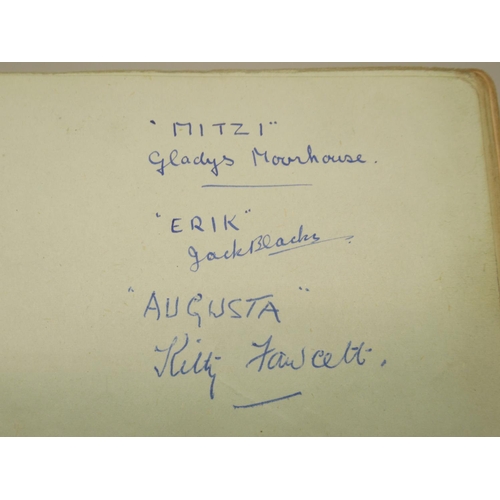 "MITZI"
Gladys Moorhouse.
"ERIK"
Jack Blacks
"AUGUSTA"
Kitty Fawcett.